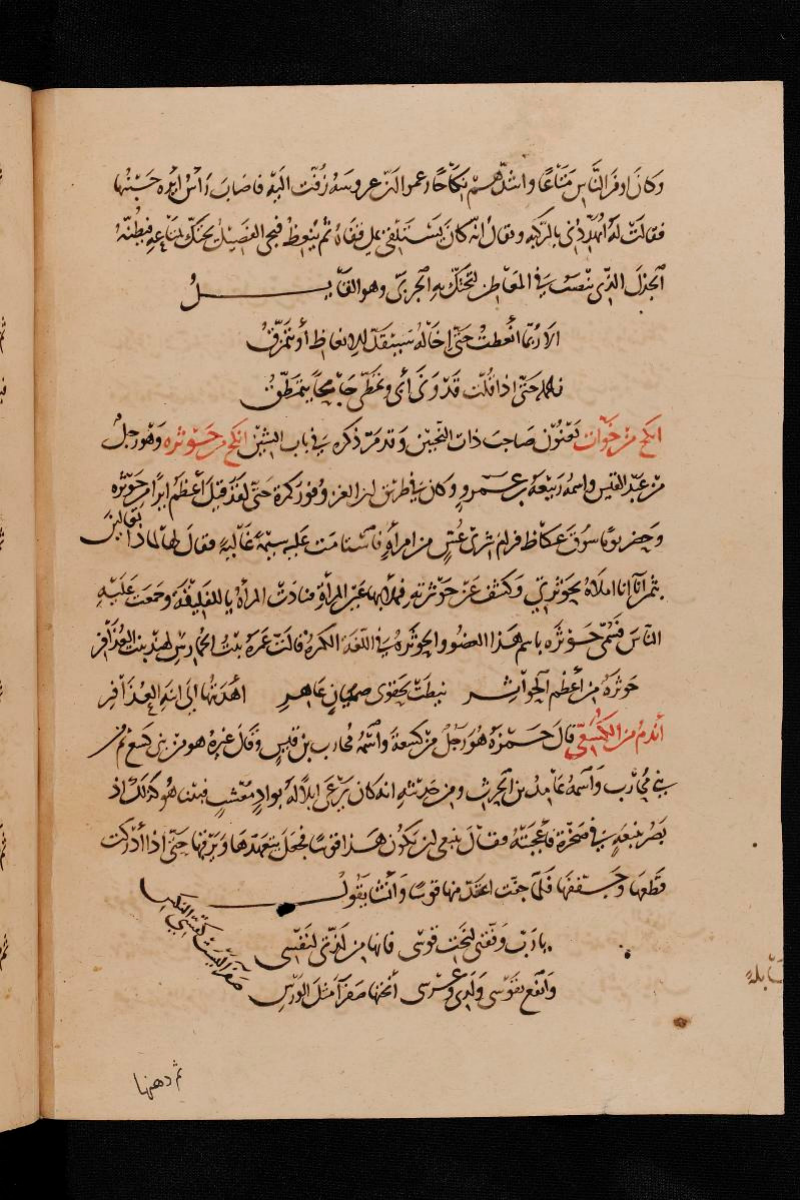 وكان اوفر الناس متاعا واشدهم نكاحا زعموا ان عروسه زفت اليه فاصاب راس ايره جنبها
فقالت له اتهددني بالركبة ويقال انه كان يستلقي على قفاه ثم ينعظ فيجي الفصيل يحتك بمتاعه فيظنه
الجذل الذي ينصب في المعاطن لتحتك به الجربى وهو القايل
الا ربما انعظت حتى اخاله سينقد للانعاظ او يتمزق
فاعمله حتى اذا قلت قد ونى ابى وتمطى جامحا يتمطق
انكح من خوات يعنون صاحب ذات النحيين وقد مر ذكره في باب الشين انكح من حوثره وهو رجل
من عبد القيس واسمه ربيعة بن عمرو وكان في طريق ابن الغز ووفور كمرة حتى لقد قيل اعظم ايرا من حوثره
وحضر يوما سوق عكاظ فرام شرى عس من امراة فاستامت عليه سيمة غالية فقال لها لماذا تغالين
بثمن انا انا املاه بحوثرتي وكشف عن حوثرته فملا بها عس المراة فنادت المراة ياللفليقة وجمعت عليه
الناس فسمي حوثره باسم هذا العضو والحوثره في اللغة الكمرة قالت عمرة بنت الحمارس لهند بنت العذافر
حوثرة من اعظم الحواثر نيطت بحقوى صميان عاهر اهديتها الى ابنة العذافر
اندم من الكسعي قال حمزة هو رجل من كسعة واسمه محارب بن قيس وقال غيره هو من بني كسع ثم من
بني محارب واسمه عامر بن الحرث ومن حديثه انه كان يرعى ابلا له بواد معشب فبينا هو كذلك اذ
بصر بنبعة في صخرة فاعجبته فقال ينبغي ان يكون هذا قوسا فجعل يتعهدها ويرقبها حتى اذا ادركت
قطعها وجففها فلما جفت اتخذ منها قوسا وانشا يقول
يا رب وفقني لنحت قوسي فانها من لذتي لنفسي
وانفع بقوسي ولدي وعرسي انحتها صفرا مثل الورس
صفرا ليست كقسي النكس
ثم دهنها